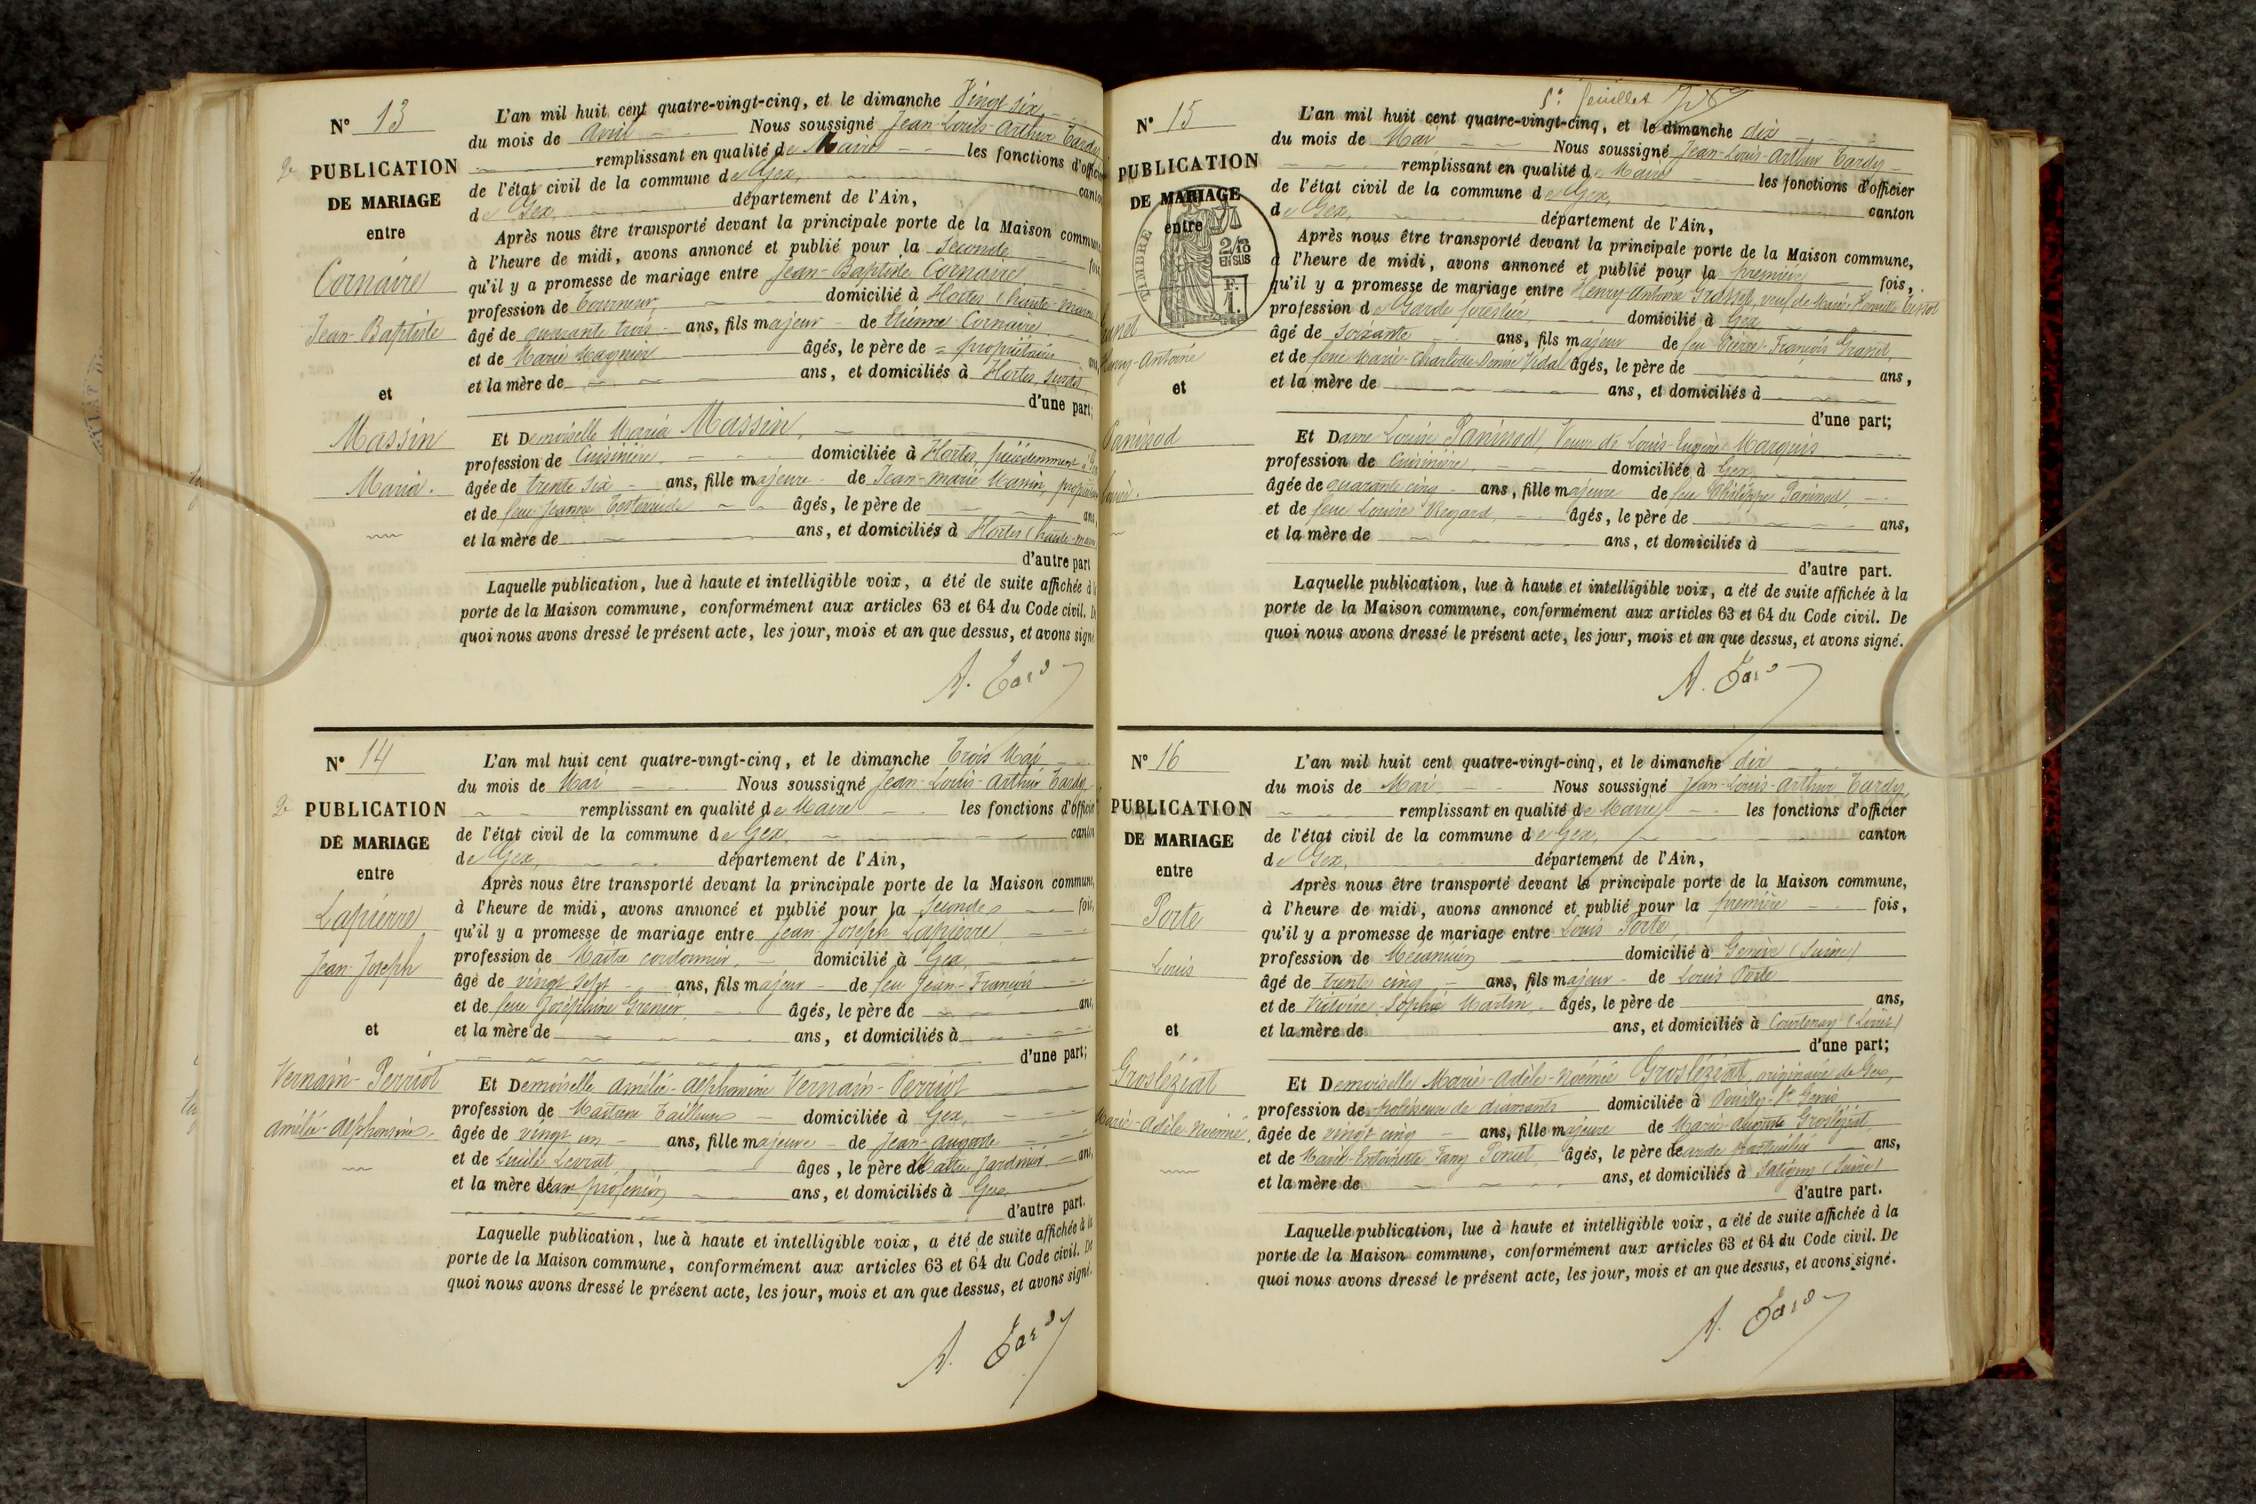 N° 13
PUBLICATION
DE MARIAGE
entre
Cornaire
Jean-Baptiste
et
Massin
Maria.
L'an mil huit cent quatre-vingt-cinq, et le dimanche Vingt six
du mois de Avril Nous soussigné Jean-Louis-Arthur Tardy
remplissant en qualité de Maire les fonctions d'officier
de l'état civil de la commune de Gex, canton
de Gex, département de l'Ain,
Après nous être transporté devant la principale porte de la Maison commune
à l'heure de midi, avons annoncé et publié pour la seconde fois
qu'il y a promesse de mariage entre Jean-Baptiste Cornaire
profession de tourneur domicilié à Hortes (haute-marne
âgé de quarante trois ans, fils majeur de Etienne Cornaire
et de Marie Magnien âgés, le père de = propriétaire ans,
et la mère de ans, et domiciliés à Hortes, susdit
d'une part;
Et Demoiselle Maria Massin,
profession de Cuisinière, domiciliée à Hortes, précédemment à
âgée de trente six ans, fille majeure de Jean-Marie Massin, propriétaire
et de feu Jeanne âgés, le père de ans,
et la mère de ans, et domiciliés à Hortes (haute-marne
d'autre part
Laquelle publication, lue à haute et intelligible voix, a été de suite affichée à la
porte de la Maison commune, conformément aux articles 63 et 64 du Code civil. De
quoi nous avons dressé le présent acte, les jour, mois et an que dessus, et avons signé
A. Tardy
N° 14
PUBLICATION
DE MARIAGE
entre
Lapierre
Jean-Joseph
et
Vernain-Perriot
Amélie-Alphonsine.
L'an mil huit cent quatre-vingt-cinq, et le dimanche Trois Mai
du mois de Mai Nous soussigné Jean-Louis-Arthur Tardy
remplissant en qualité de Maire les fonctions d'officier
de l'état civil de la commune de Gex, canton
de Gex, département de l'Ain,
Après nous être transporté devant la principale porte de la Maison commune,
à l'heure de midi, avons annoncé et publié pour la seconde fois,
qu'il y a promesse de mariage entre Jean-Joseph Lapierre
profession de Maître cordonnier, domicilié à Gex,
âgé de vingt sept ans, fils majeur de feu Jean-François
et de feue Joséphine Grenier, âgés, le père de ans,
et la mère de ans, et domiciliés à
d'une part;
Et Demoiselle Amélie-Alphonsine Vernain-Perriot
profession de Maîtresse Tailleuse domiciliée à Gex,
âgée de vingt un ans, fille majeure de Jean-Auguste
et de Lucile Levrat âges, le père de Maître Jardinier ans,
et la mère de sans profession ans, et domiciliés à Gex
d'autre part.
Laquelle publication, lue à haute et intelligible voix, a été de suite affichée à la
porte de la Maison commune, conformément aux articles 63 et 64 du Code civil. De
quoi nous avons dressé le présent acte, les jour, mois et an que dessus, et avons signé.
A. Tardy
5e feuillet
N° 15
PUBLICATION
DE MARIAGE
entre
TIMBRE
2/10
EN SUS
F.
1.
Henry-Antoine
et
Paninod
L'an mil huit cent quatre-vingt-cinq, et le dimanche dix
du mois de Mai Nous soussigné Jean-Louis-Arthur Tardy
remplissant en qualité de Maire les fonctions d'officier
de l'état civil de la commune de Gex, canton
de Gex, département de l'Ain,
Après nous être transporté devant la principale porte de la Maison commune,
à l'heure de midi, avons annoncé et publié pour la première fois,
qu'il y a promesse de mariage entre Henry-Antoine Granet, veuf de Marie
profession de Garde forestier domicilié à Gex
âgé de soixante ans, fils majeur de feu Pierre-François Granet,
et de feue Marie-Charlotte-Denise Vidal âgés, le père de ans,
et la mère de ans, et domiciliés à
d'une part;
Et Dame Louise Paninod, Veuve de Louis-Eugène Marquis
profession de Cuisinière, domiciliée à Gex,
âgée de quarante cinq ans, fille majeure de feu Philippe Paninod,
et de feue Louise Regard, âgés, le père de ans,
et la mère de ans, et domiciliés à
d'autre part.
Laquelle publication, lue à haute et intelligible voix, a été de suite affichée à la
porte de la Maison commune, conformément aux articles 63 et 64 du Code civil. De
quoi nous avons dressé le présent acte, les jour, mois et an que dessus, et avons signé.
A. Tardy
N° 16
PUBLICATION
DE MARIAGE
entre
Porte
Louis
et
Grosléziat
Marie-Adèle-Noémie.
L'an mil huit cent quatre-vingt-cinq, et le dimanche dix
du mois de Mai Nous soussigné Jean-Louis-Arthur Tardy,
remplissant en qualité de Maire les fonctions d'officier
de l'état civil de la commune de Gex, canton
de Gex, département de l'Ain,
Après nous être transporté devant la principale porte de la Maison commune,
à l'heure de midi, avons annoncé et publié pour la première fois,
qu'il y a promesse de mariage entre Louis Porte
profession de Mécanicien domicilié à Genève (Suisse)
âgé de trente cinq ans, fils majeur de Louis Porte
et de Victoire-Sophie Martin, âgés, le père de ans,
et la mère de ans, et domiciliés à Courtenay (Loiret)
d'une part;
Et Demoiselle Marie-Adèle-Noémie Grosléziat, originaire de Gex,
profession de polisseuse de diamants domiciliée à Pouilly-St Genis
âgée de vingt cinq ans, fille majeure de Marie-Auguste Grosléziat,
et de Marie-Antoinette Fany Poncet, âgés, le père de Garde particulier ans,
et la mère de ans, et domiciliés à Satigny (Suisse)
d'autre part.
Laquelle publication, lue à haute et intelligible voix, a été de suite affichée à la
porte de la Maison commune, conformément aux articles 63 et 64 du Code civil. De
quoi nous avons dressé le présent acte, les jour, mois et an que dessus, et avons signé.
A. Tardy